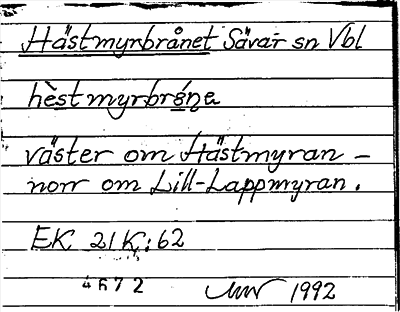 Hästmyrbrånet Sävar sn Vbl
hèstmyrbrǿna
väster om Hästmyran –
norr om Lill-Lappmyran.
EK 21K:62
4672
1992